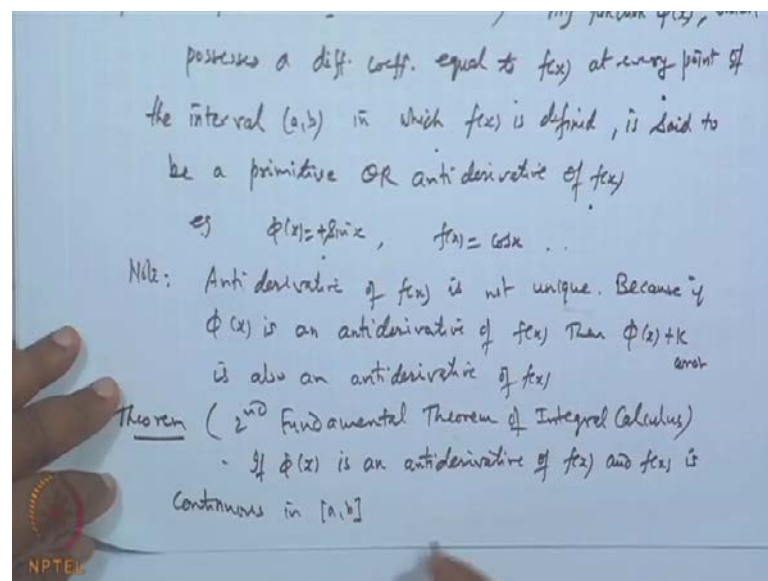 my function φ(x), which
possesses a diff. coeff. equal to f(x) at every point of
the interval (a,b) in which f(x) is defined, is said to
be a primitive OR antiderivative of f(x)
eg φ(x)=+sinx, f(x)= cosx ..
Note: Antiderivative of f(x) is not unique. Because if
φ(x) is an antiderivative of f(x) Then φ(x)+K
is also an antiderivative of f(x)
Theorem (2nd Fundamental Theorem of Integral Calculus)
- If φ(x) is an antiderivative of f(x) and f(x) is
Continuous in [a,b]
NPTEL